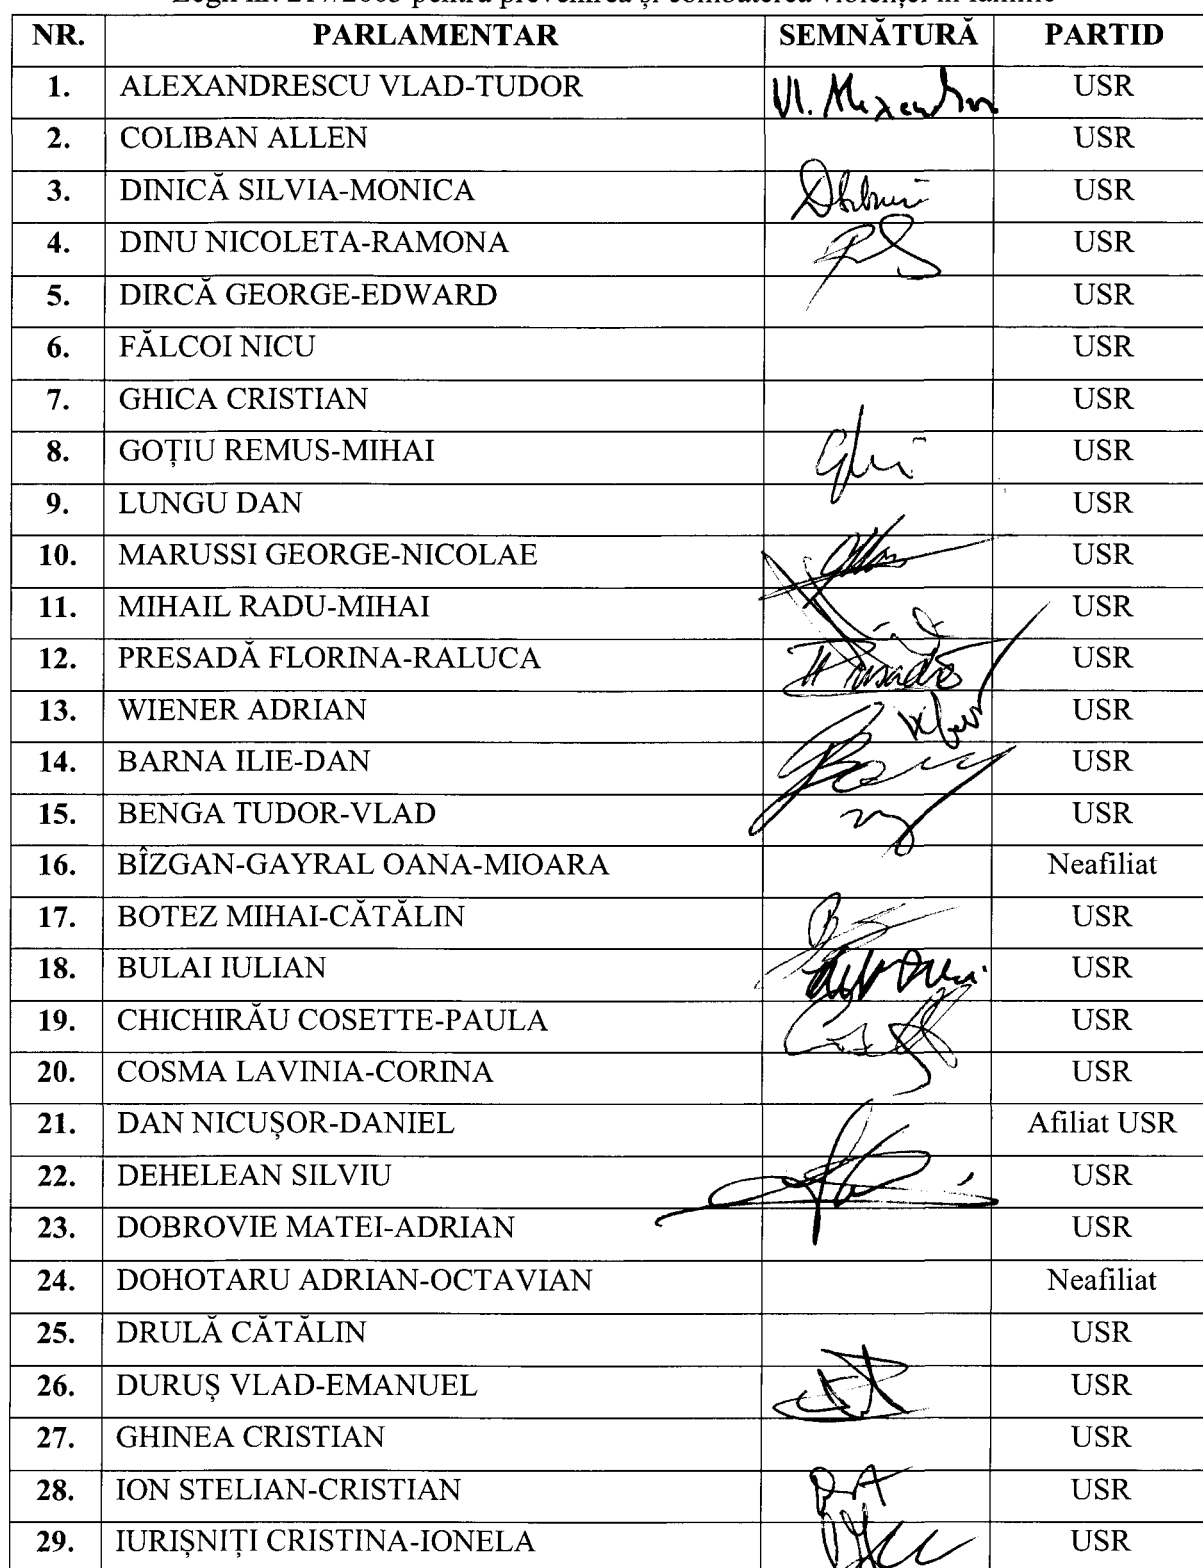 Legii nr. 217/2003 pentru prevenirea și combaterea violenței în familie
NR. PARLAMENTAR SEMNĂTURĂ PARTID
1. ALEXANDRESCU VLAD-TUDOR Vl. Alexandrescu USR
2. COLIBAN ALLEN USR
3. DINICĂ SILVIA-MONICA USR
4. DINU NICOLETA-RAMONA USR
5. DIRCĂ GEORGE-EDWARD USR
6. FĂLCOI NICU USR
7. GHICA CRISTIAN USR
8. GOȚIU REMUS-MIHAI USR
9. LUNGU DAN USR
10. MARUSSI GEORGE-NICOLAE USR
11. MIHAIL RADU-MIHAI USR
12. PRESADĂ FLORINA-RALUCA USR
13. WIENER ADRIAN USR
14. BARNA ILIE-DAN USR
15. BENGA TUDOR-VLAD USR
16. BÎZGAN-GAYRAL OANA-MIOARA Neafiliat
17. BOTEZ MIHAI-CĂTĂLIN USR
18. BULAI IULIAN USR
19. CHICHIRĂU COSETTE-PAULA USR
20. COSMA LAVINIA-CORINA USR
21. DAN NICUȘOR-DANIEL Afiliat USR
22. DEHELEAN SILVIU USR
23. DOBROVIE MATEI-ADRIAN USR
24. DOHOTARU ADRIAN-OCTAVIAN Neafiliat
25. DRULĂ CĂTĂLIN USR
26. DURUȘ VLAD-EMANUEL USR
27. GHINEA CRISTIAN USR
28. ION STELIAN-CRISTIAN USR
29. IURIȘNIȚI CRISTINA-IONELA USR